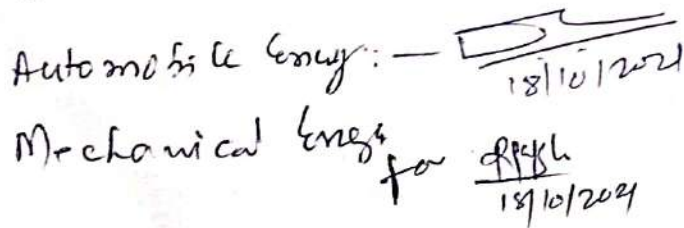 Automobile Engg: — 18/10/2021
Mechanical Engg for
18/10/2021